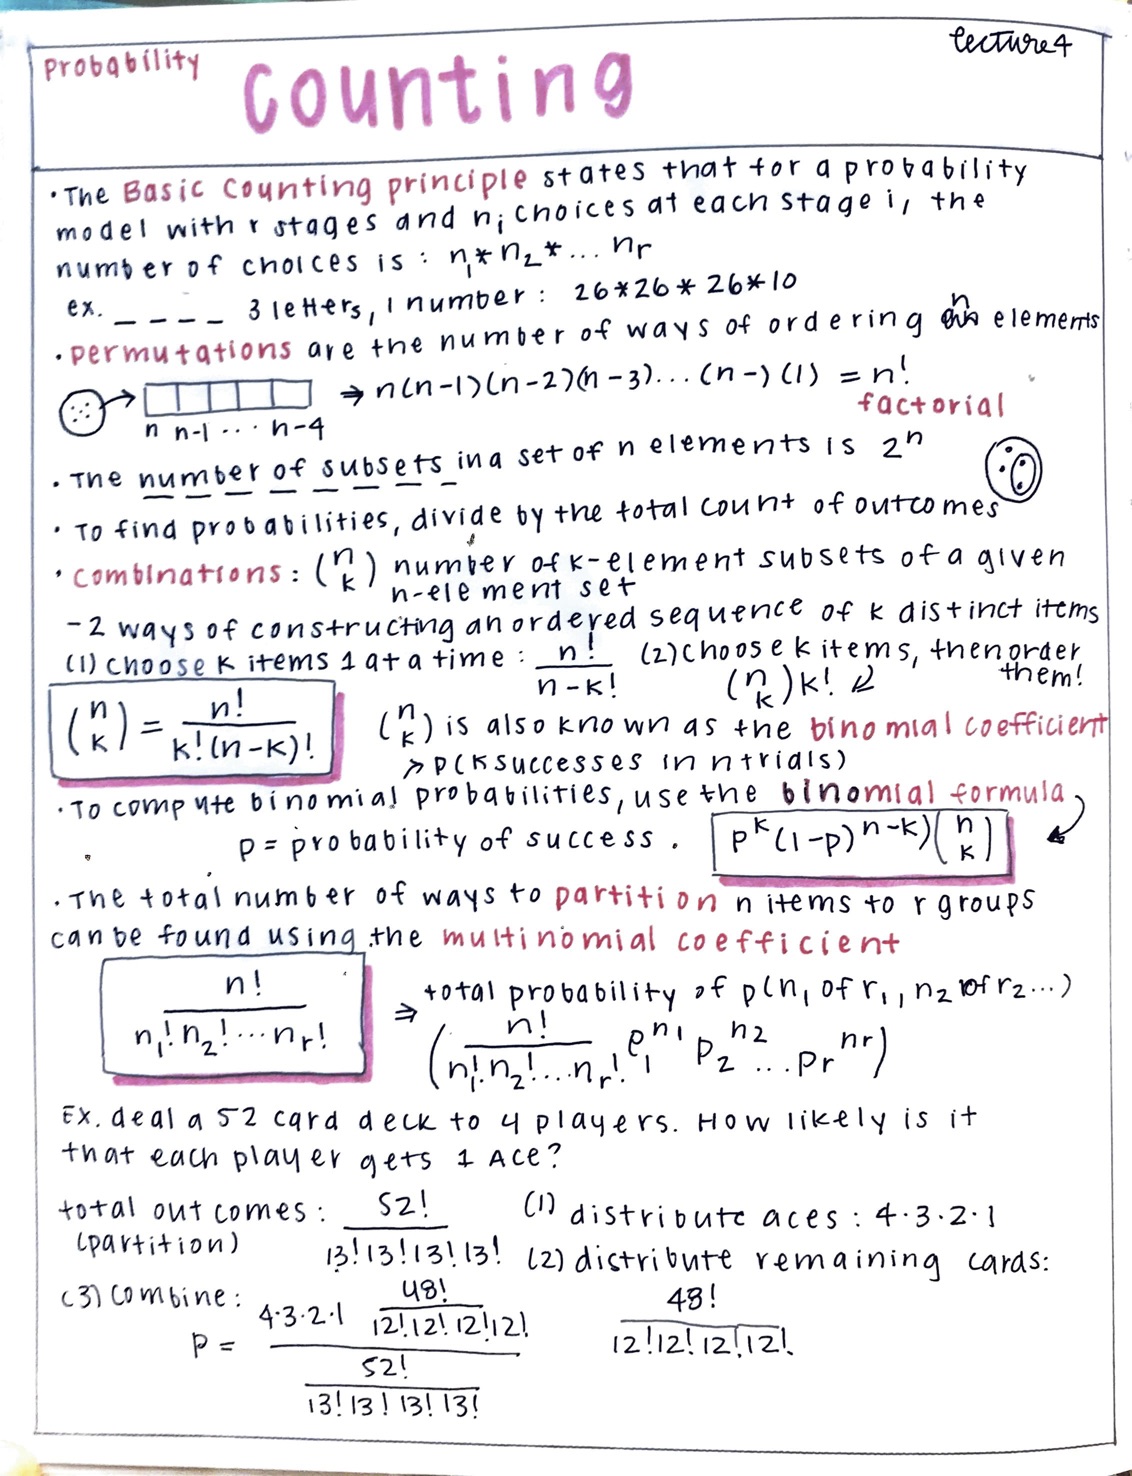 Probability
Counting
Lecture 4
• The Basic Counting principle states that for a probability
model with r stages and nᵢ choices at each stage i, the
number of choices is : n₁ * n₂ * ... nr
ex. _ _ _ _ 3 letters, 1 number : 26*26*26*10
• permutations are the number of ways of ordering n elements
⇒ n(n-1)(n-2)(n-3)...(n-)(1) = n!
factorial
n n-1 ... n-4
• The number of subsets in a set of n elements is 2ⁿ
• To find probabilities, divide by the total count of outcomes
• combinations : (n k) number of k-element subsets of a given
n-element set
- 2 ways of constructing an ordered sequence of k distinct items
(1) choose k items 1 at a time : n! / n-k! (2) choose k items, then order
them!
(n k) k!
(n k) = n! / k!(n-k)!
(n k) is also known as the binomial coefficient
> P(k successes in n trials)
• To compute binomial probabilities, use the binomial formula
p = probability of success . p^k (1-p)^n-k) (n k)
• The total number of ways to partition n items to r groups
can be found using the multinomial coefficient
n! / n₁! n₂! ... nr!
⇒ total probability of p(n₁ of r₁, n₂ of r₂ ...)
(n! / n₁! n₂! ... nr! p₁^n₁ p₂^n₂ ... pr^nr)
Ex. deal a 52 card deck to 4 players. How likely is it
that each player gets 1 Ace?
total outcomes : 52! / 13! 13! 13! 13!
(partition)
(1) distribute aces : 4·3·2·1
(2) distribute remaining cards:
48! / 12! 12! 12! 12!
(3) combine :
p = 4·3·2·1 48! / 12! 12! 12! 12! / 52! / 13! 13! 13! 13!